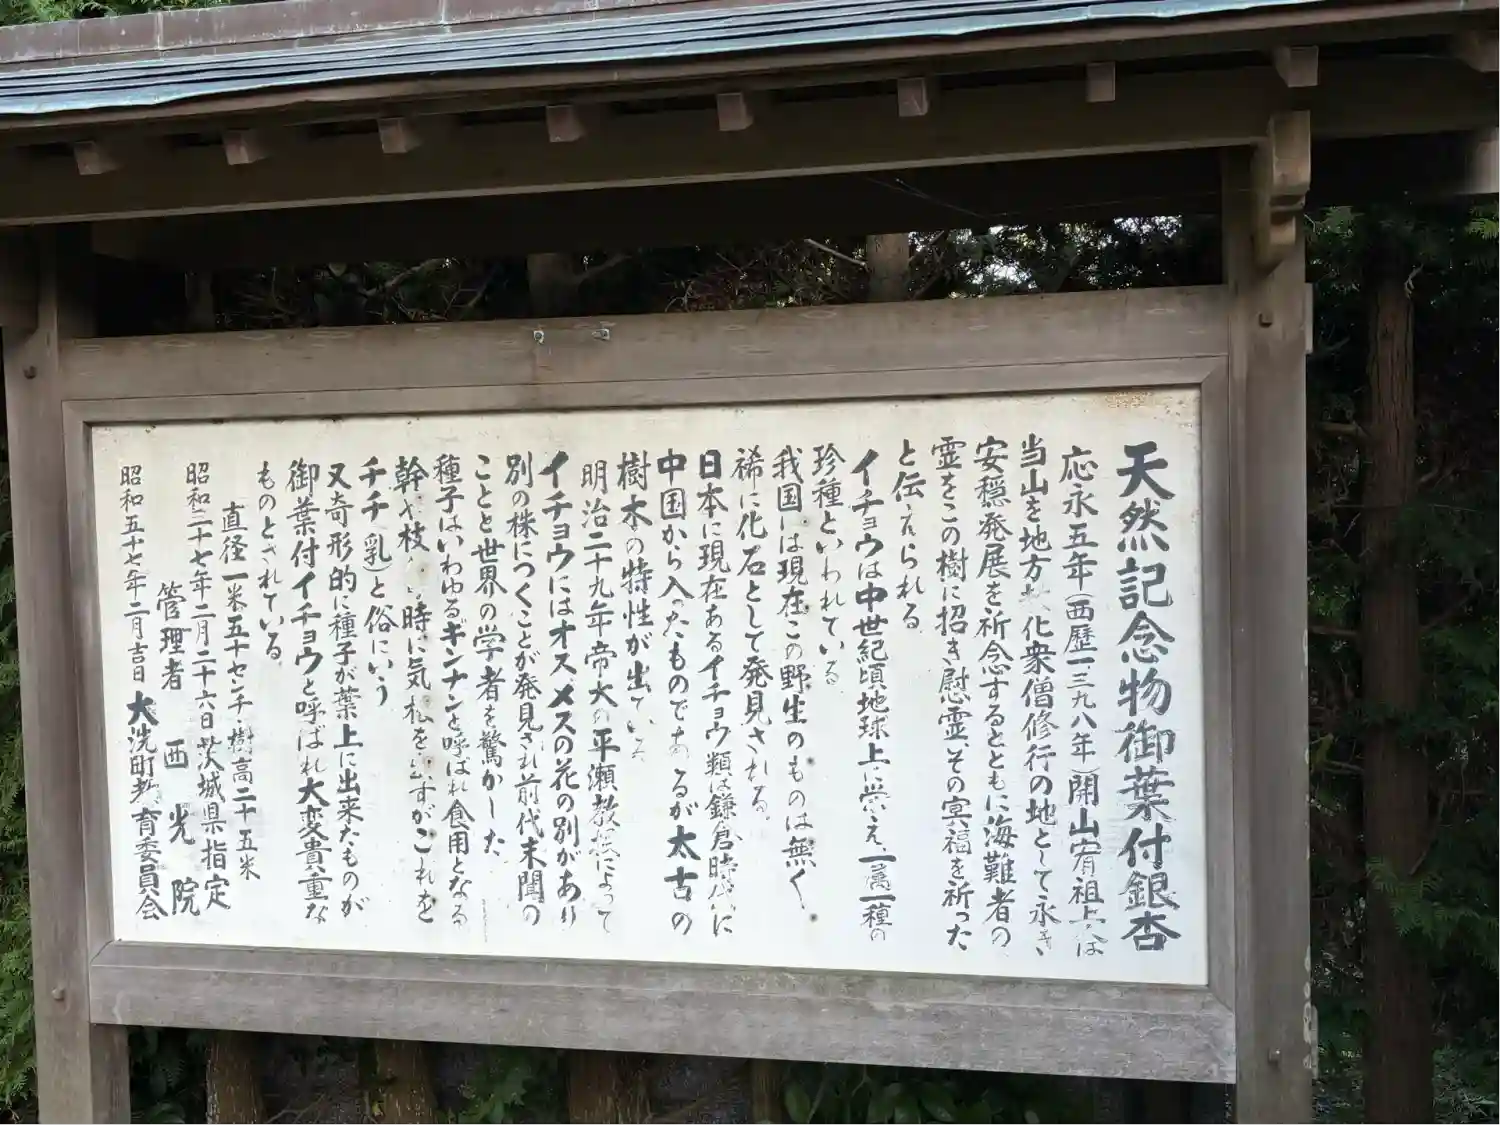 天然記念物御葉付銀杏
応永五年(西歴一三九八年)開山宥祖上人は
当山を地方 化衆僧修行の地として永き
安穏発展を祈念するとともに海難者の
霊をこの樹に招き慰霊、その冥福を祈った
と伝えられる
イチョウは中世紀頃地球上に栄え、一属一種の
珍種といわれている
我国には現在この野生のものは無く
稀に化石として発見される
日本に現在あるイチョウ類は鎌倉時代に
中国から入ったものであるが太古の
樹木の特性が出ている
明治二十九年帝大の平瀬教授によって
イチョウにはオス、メスの花の別があり
別の株につくことが発見され前代未聞の
ことと世界の学者を驚かした
種子はいわゆるギンナンと呼ばれ食用となる
幹や枝 時に気根を出すがこれを
チチ(乳)と俗にいう
又奇形的に種子が葉上に出来たものが
御葉付イチョウと呼ばれ大変貴重な
ものとされている
直径一米五十センチ・樹高二十五米
昭和二十七年二月二十六日茨城県指定
管理者 西光院
昭和五十七年二月吉日 大洗町教育委員会